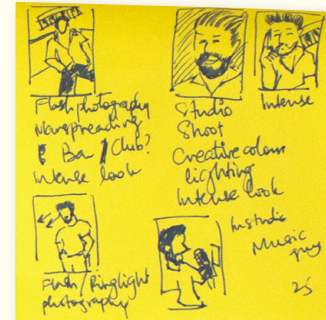 Flash photography
Manspreading
Bar / Club?
Intense look
Studio
Shoot
Creative colour
lighting
Intense look
Intense
Flash / Ringlight
photography
In studio
Music
guy